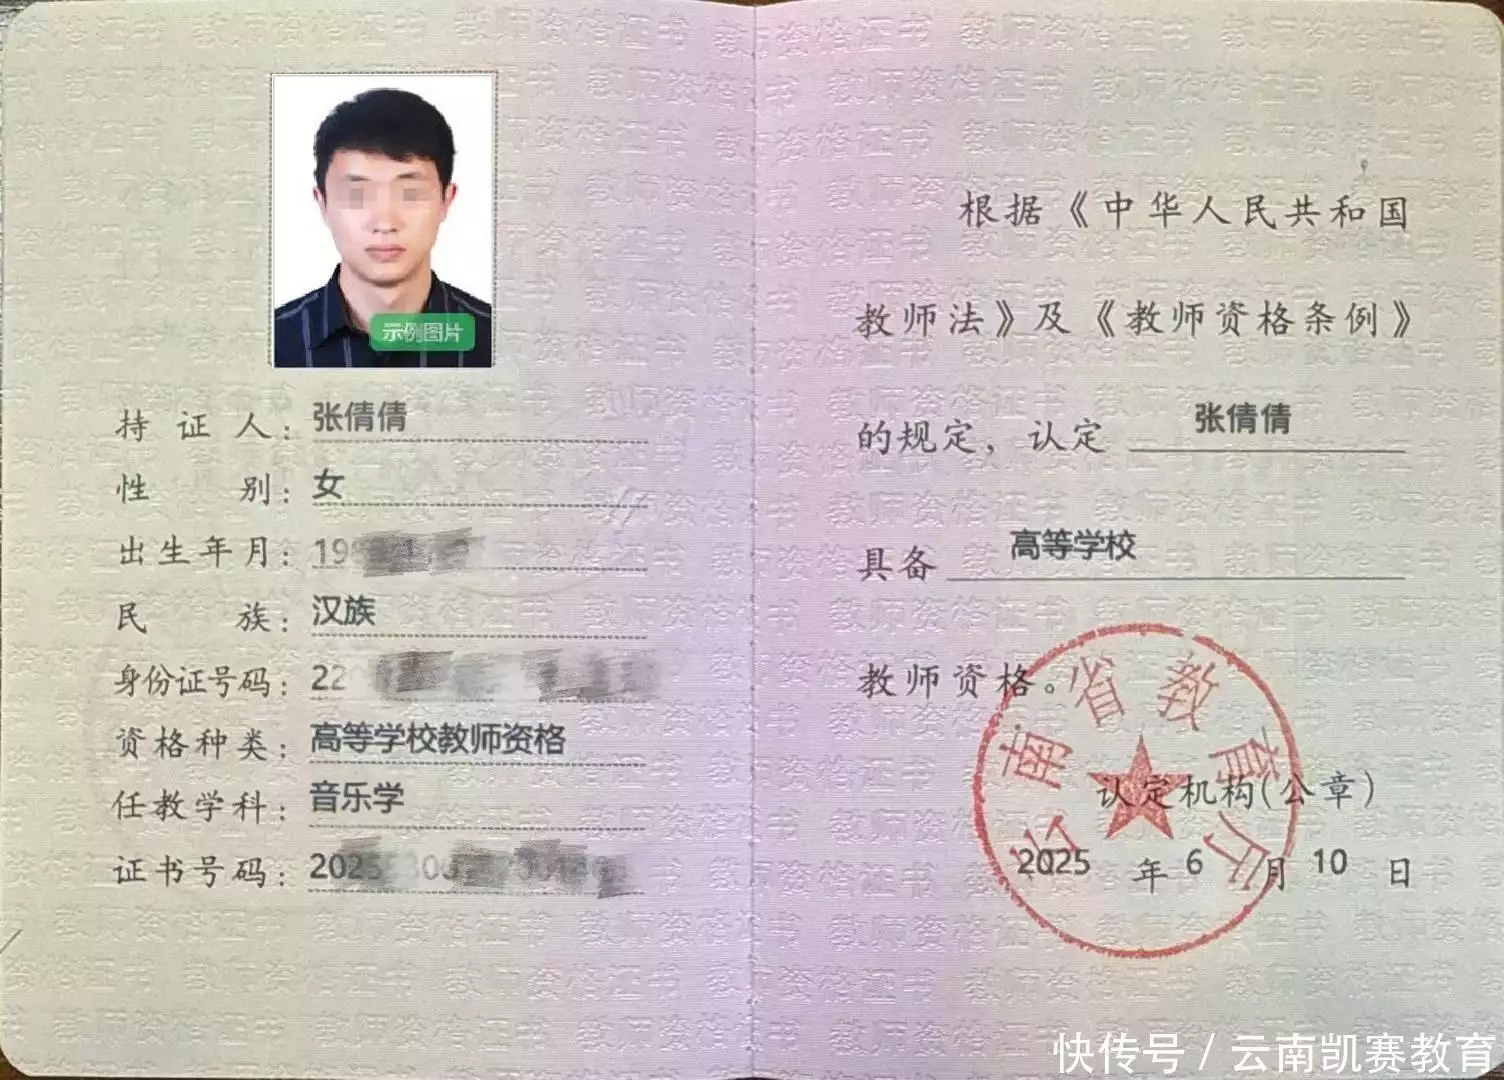 示例图片
持证人：张倩倩
性别：女
出生年月：19
民族：汉族
身份证号码：22
资格种类：高等学校教师资格
任教学科：音乐学
证书号码：2025
根据《中华人民共和国
教师法》及《教师资格条例》
的规定，认定 张倩倩
具备 高等学校
教师资格。
云南省教育厅
认定机构(公章)
2025年6月10日
快传号 / 云南凯赛教育